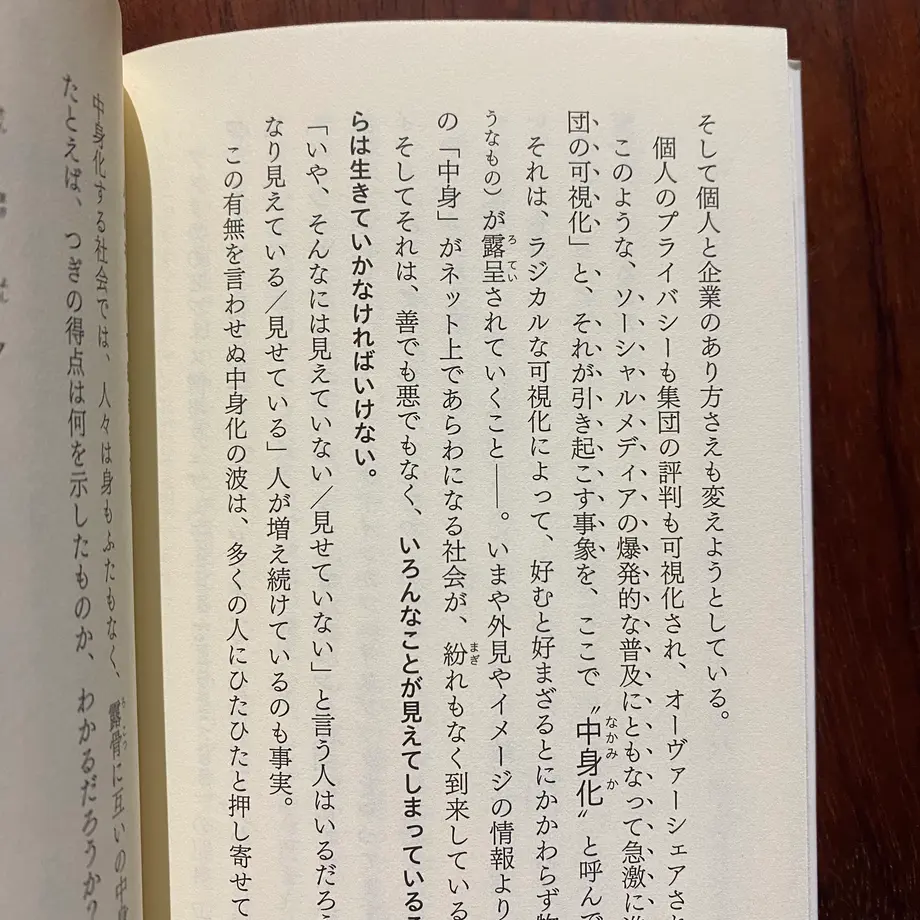 そして個人と企業のあり方さえも変えようとしている。
個人のプライバシーも集団の評判も可視化され、オーヴァーシェアされ
このような、ソーシャルメディアの爆発的な普及にともなって急激に進
団の可視化」と、それが引き起こす事象を、ここで〝中身化〟と呼んで
それは、ラジカルな可視化によって、好むと好まざるとにかかわらず物
うなもの）が露呈されていくこと――。いまや外見やイメージの情報より
の「中身」がネット上であらわになる社会が、紛れもなく到来している
そしてそれは、善でも悪でもなく、いろんなことが見えてしまっているこ
らは生きていかなければいけない。
「いや、そんなには見えていない／見せていない」と言う人はいるだろう
なり見えている／見せている」人が増え続けているのも事実。
この有無を言わせぬ中身化の波は、多くの人にひたひたと押し寄せて
中身化する社会では、人々は身もふたもなく、露骨に互いの中身
たとえば、つぎの得点は何を示したものか、わかるだろうか？